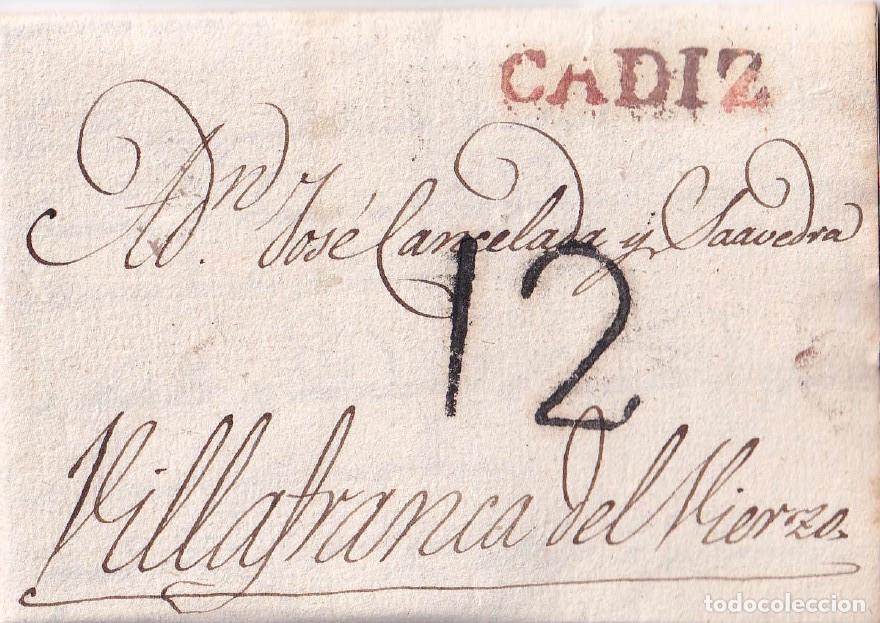 CADIZ
A Dn. José Cancelada y Saavedra
12
Villafranca del Vierzo.
todocoleccion